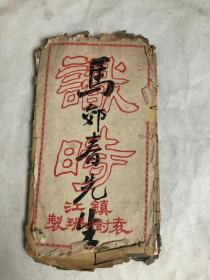 識時
馬郊春先生
鎮江
袁樹珊製